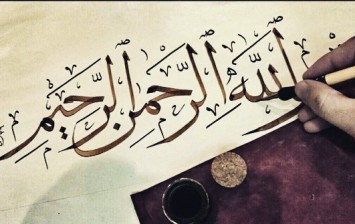 الله الرَّحمنِ الرَّحِيمِ